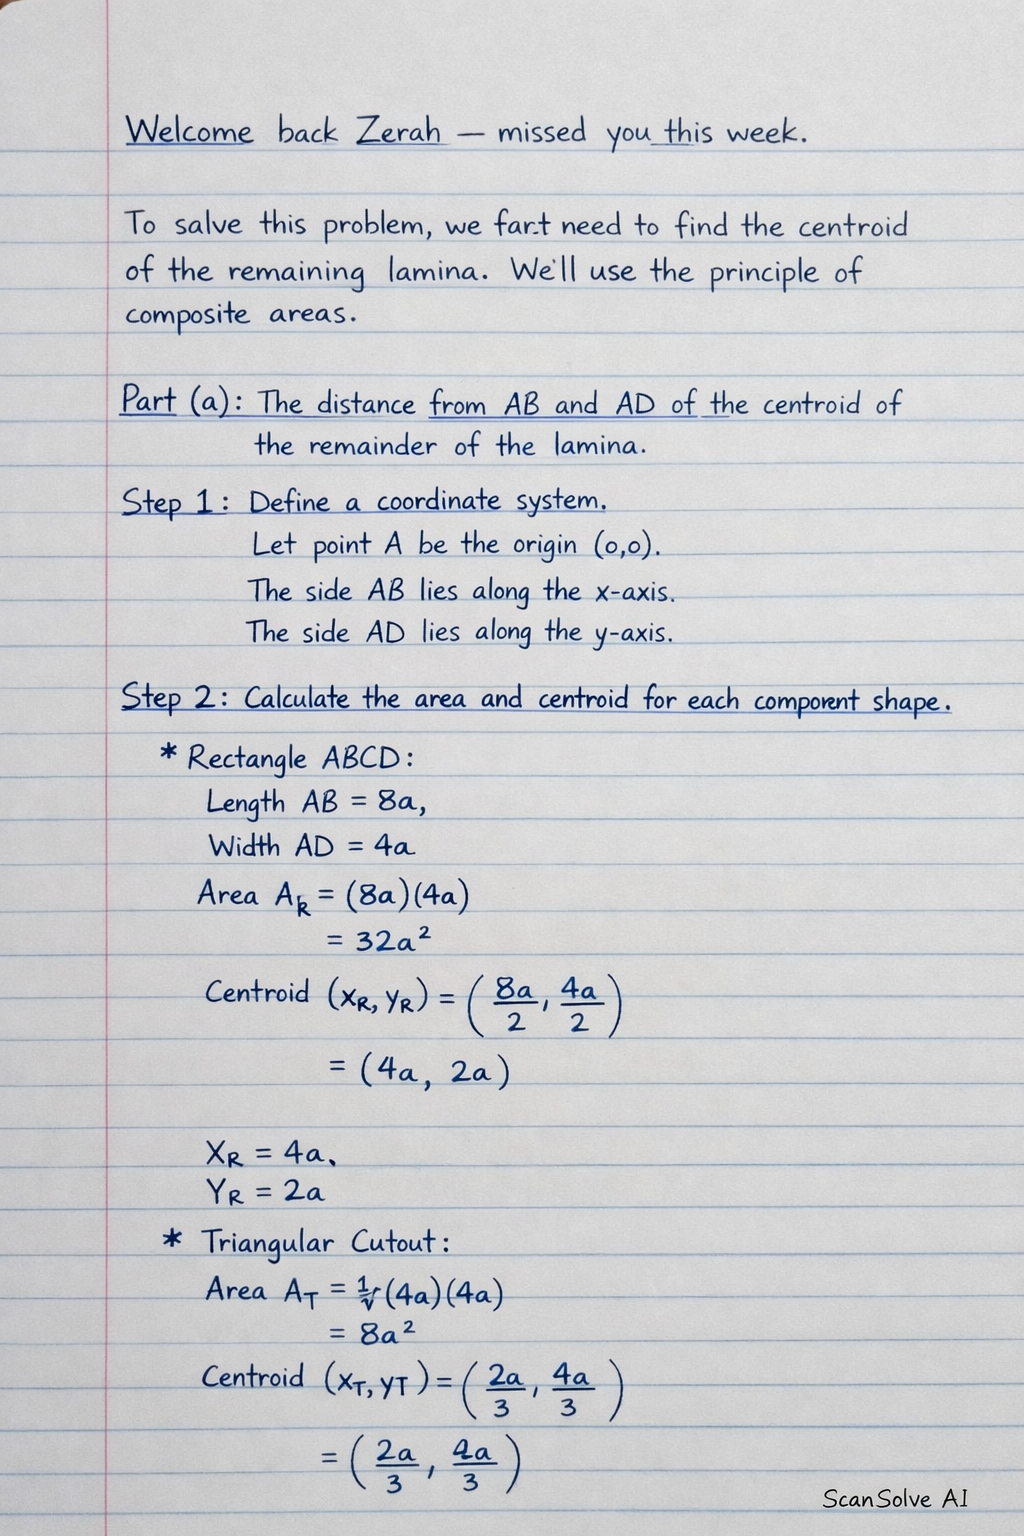 Welcome back Zerah — missed you this week.
To salve this problem, we fart need to find the centroid
of the remaining lamina. We'll use the principle of
composite areas.
Part (a): The distance from AB and AD of the centroid of
the remainder of the lamina.
Step 1: Define a coordinate system.
Let point A be the origin (0,0).
The side AB lies along the x-axis.
The side AD lies along the y-axis.
Step 2: Calculate the area and centroid for each component shape.
* Rectangle ABCD:
Length AB = 8a,
Width AD = 4a
Area A_R = (8a)(4a)
= 32a²
Centroid (x_R, y_R) = (8a/2, 4a/2)
= (4a, 2a)
X_R = 4a,
Y_R = 2a
* Triangular Cutout:
Area A_T = (4a)(4a)
= 8a²
Centroid (x_T, y_T) = (2a/3, 4a/3)
= (2a/3, 4a/3)
ScanSolve AI